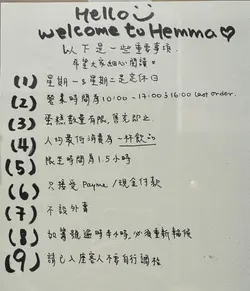 Hello
welcome to Hemma♡
以下是一些重要事項
希望大家細心閱讀。
(1) 星期一&星期二是定休日
(2) 營業時間為10:00-17:00 &16:00 last order.
(3) 蛋糕數量有限,售完即止.
(4) 人均最低消費為一杯飲品
(5) 限芝時間為1.5小時
(6) 只接受Payme/現金付款
(7) 不設外賣
(8) 如籌號過時半小時,必須重新輪候
(9) 請已入座客人不要自行調枱